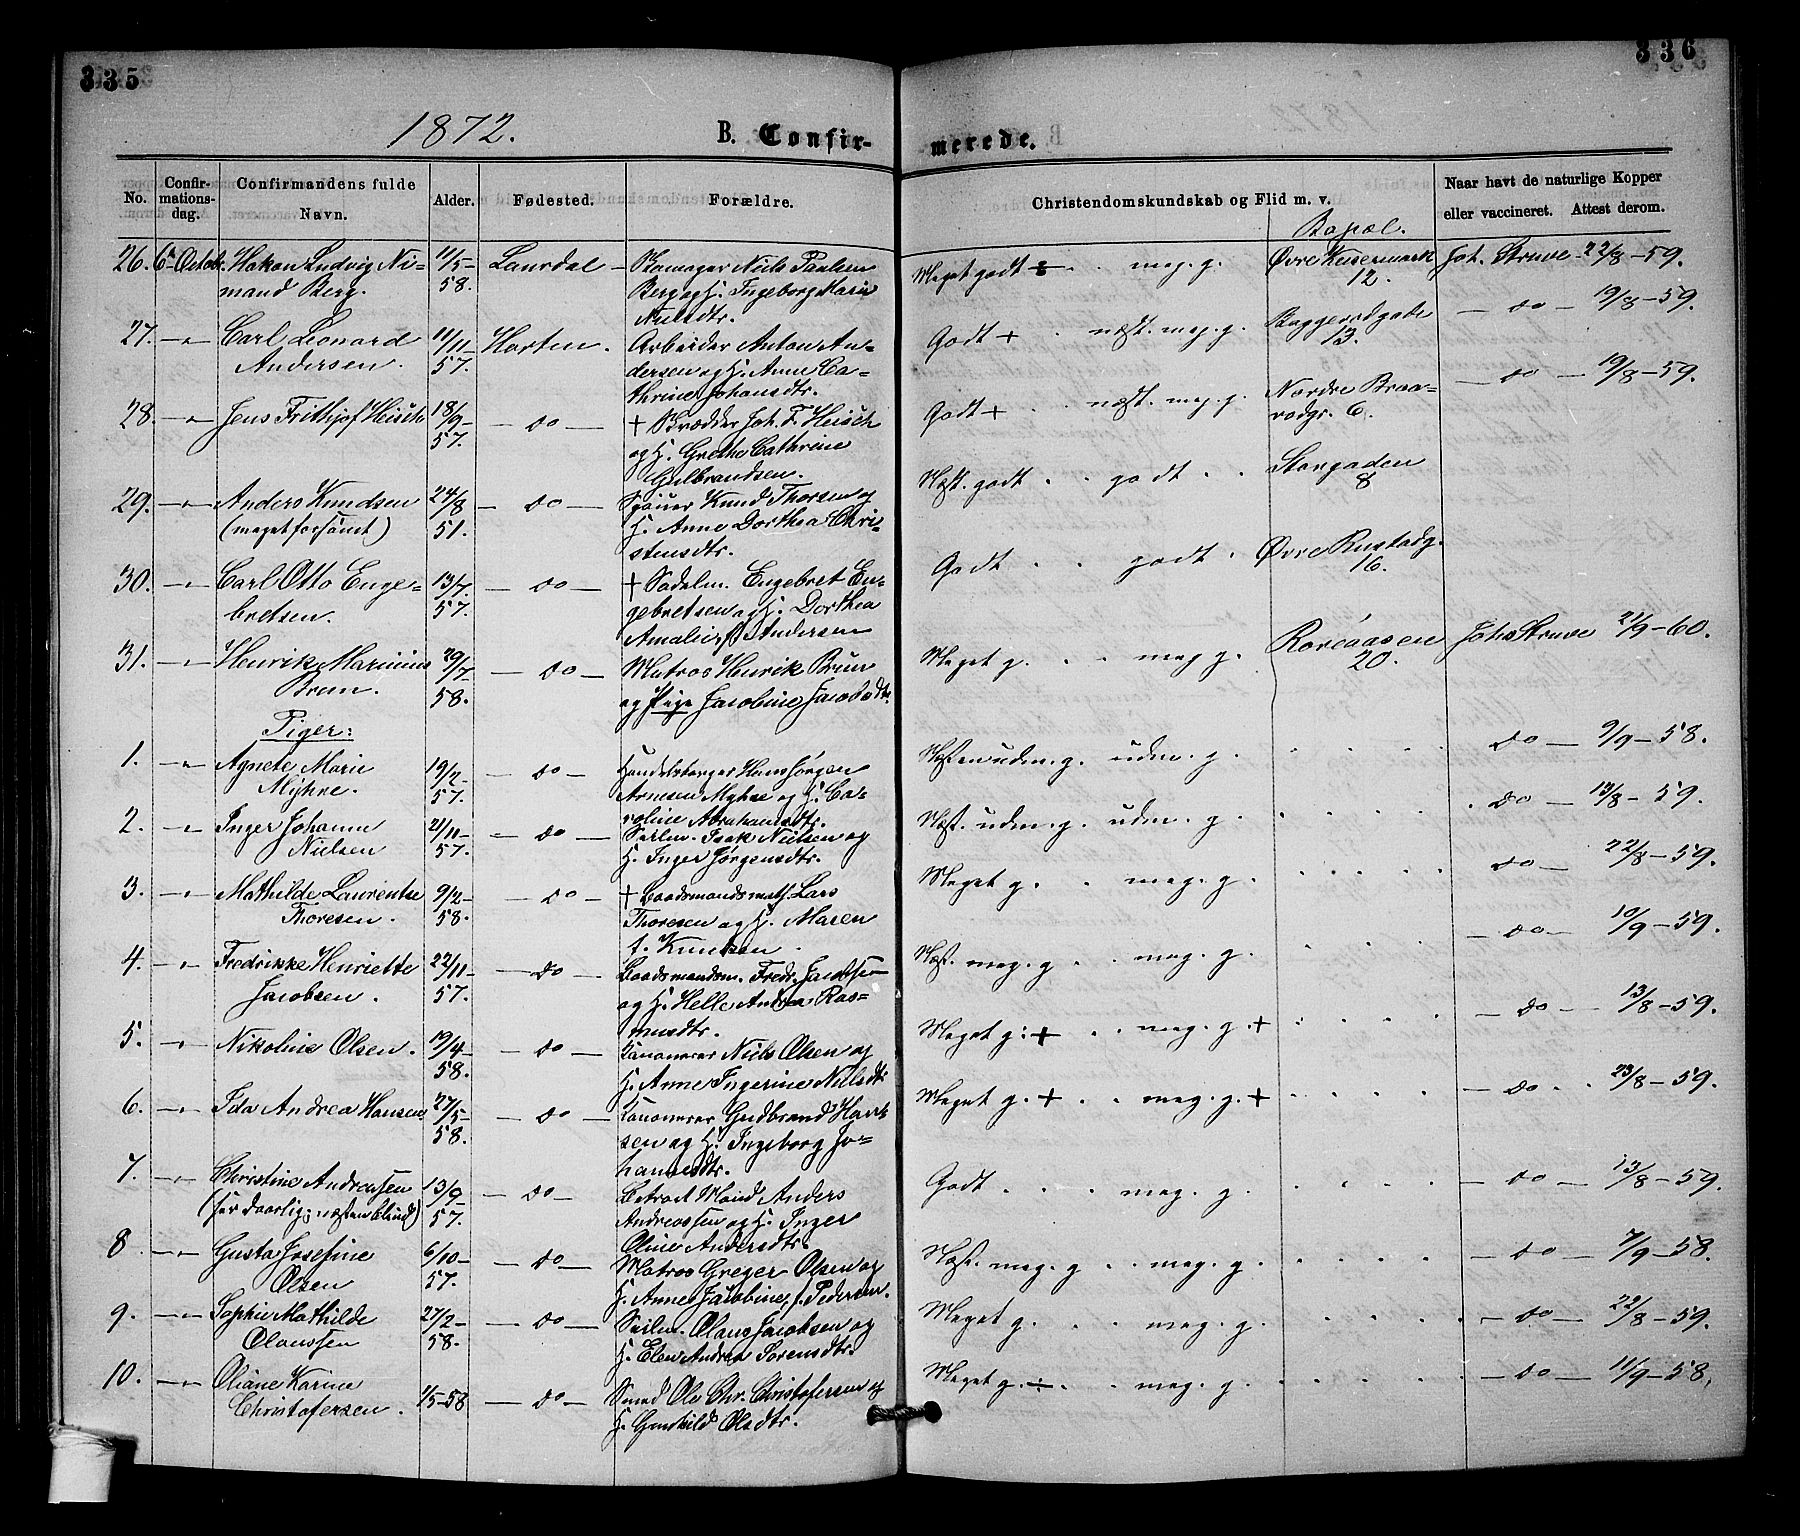 335
336
1872.
B. Confir-
merede.
No.
Confir-
mations-
dag.
Confirmandens fulde
Navn.
Alder.
Fødested.
Forældre.
Christendomskundskab og Flid m. v.
Naar havt de naturlige Kopper
eller vaccineret. Attest derom.
Bopæl.
26. 6te Octob. Hakon Ludvig Ni- 11/5- Laurdal - Skomager Niels Paulsen
mand Berg. 58. Berg og H. Ingeborg Marie
Nielsdtr.
Meget godt . . meg. g. Øvre Keisermark Joh. Struve - 22/8-59.
12.
27. -„- Carl Leonard 11/11- Horten. Arbeider Anton An-
Andersen. 57. dersen og H. Anne Ca-
thrine Johansdtr.
Godt + . næst. meg. g. Baggerødgade - do - 19/8-59.
13.
28. -„- Jens Frithjof Heisch 18/9- - do - + Skrædder Joh. F. Heisch
57. og H. Grethe Cathrine
Gulbrandsen.
Godt + . . næst. meg. g. Nordre Braa- - do - 19/8-59.
rodgt. 6.
29. -„- Anders Knudsen 24/8 - do - Knud Thorsen og
(meget forsømt) 51. H. Anne Dorthea Chri-
stensdtr.
Næst. godt . godt . . Storgaden
8
30. -„- Carl Otto Enge- 13/7- - do - + Sadelm. Engebret En-
bretsen. 57. gebretsen og H. Dorthea
Amalie f. Andersen
Godt . . godt . Øvre Rustadg.
16.
31. -„- Henrik Marinius 29/7 - do - Matros Henrik Brun
Brun. 58. og Pige Jacobine Jacobsdtr.
Meget g. . . meg g. Roreaasen Johs Struve 21/9-60.
20.
Piger:
1. -„- Agnete Marie 19/2- - do - Handelsborger Hans Jørgen
Myhre. 57. Arnesen Myhre og H. Ca-
roline Abrahamsdtr.
Næsten udm. g. udm. g. . . . do - 9/9-58.
2. -„- Inger Johanne 21/11- - do - Seilm. Isak Nielsen og
Nielsen 57. H. Inger Jørgensdtr.
Næst. udm. g. udm. g. . . . . do - 13/8-59.
3. -„- Mathilde Laurentse 9/2- - do - + Baadsmandsmath. Lars
Thoresen. 58. Thoresen og H. Maren
f. Knudsen.
Meget g. . . meg. g. . . . do - 22/8-59.
4. -„- Fredrikke Henriette 22/11- - do - Baadsmandsm. Fredr. Jacobsen
Jacobsen. 57. og H. Helle Andrea Ras-
musdtr.
Næst. meg. g . meg. g. . . . - do - 10/9-59.
5. -„- Nikoline Olsen. 19/4- - do - Kanonerer Niels Olsen og
58. H. Anne Ingerine Nielsdtr
Meget g. + . . meg. g. + . . . - do - 13/8-59.
6. -„- Ida Andrea Hansen 27/5 - do - Kanonerer Gudbrand Han-
58. sen og H. Ingeborg Jo-
hannesdtr.
Meget g. + . . meg. g. + . . . - do . . 23/8-59.
7. -„- Christine Andreassen 13/9 - do - Anders
(ser daarlig; næsten blind) 57. Andreassen og H. Inger
Oline Andersdtr.
Godt . . . meg. g. . . . - do - 13/8-59.
8. -„- Gusta Josefine 6/10- - do - Matros Greger Olsen og
Olsen 57. H. Anne Jacobine f. Pedersen.
Næst. meg. g . . meg. g. . . . - do - 7/9-58.
9. -„- Sophie Mathilde 27/2- - do - Seilm. Olaus Jacobsen og
Olaussen 58. H. Elen Andrea Sorensdtr.
Meget g. . . meg. g. . . . - do - 22/8-59.
10. -„- Oliane Karine 1/5-58 - do - Smed Ole Chr. Christofersen og
Christofersen. H. Gunhild Olsdtr.
Meget g. ÷ . . meg. g. . . . - do - 11/9-58,